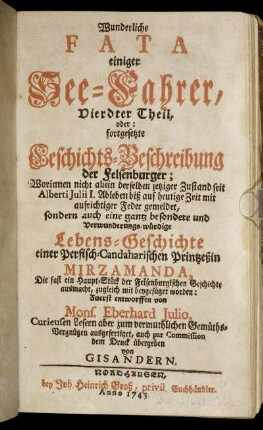 Wunderliche
FATA
einiger
See-Fahrer,
Vierdter Theil,
oder:
fortgesetzte
Geschichts-Beschreibung
der Felsenburger;
Worinnen nicht allein derselben jetziger Zustand seit
Alberti Julii I. Ableben biß auf heutige Zeit mit
aufrichtiger Feder gemeldet,
sondern auch eine gantz besondere und
Verwunderungs-würdige
Lebens-Geschichte
einer Persisch-Candaharischen Printzeßin
MIRZAMANDA,
Die fast ein Haupt-Stück der Felsenburgischen Geschichte
ausmacht, zugleich mit beygefüget worden:
Zuerst entworffen von
Mons. Eberhard Julio,
Curieusen Lesern aber zum vermuthlichen Gemüths-
Vergnügen ausgefertiget, auch par Commission
dem Druck übergeben
von
GISANDERN.
NORDHAUSEN,
bey Joh. Heinrich Groß, privil. Buchhändler.
Anno 1743